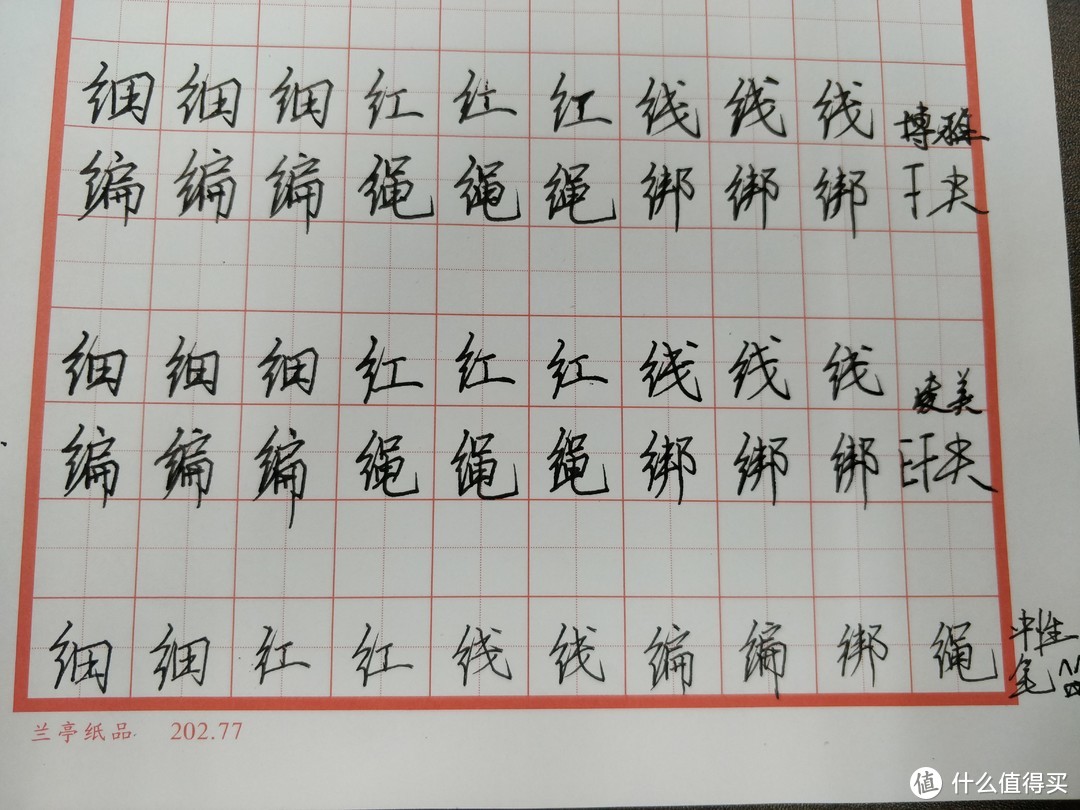 细细细红红红线线线 博雅
编编编绳绳绳绑绑绑 F尖
细细细红红红线线线 凌美
编编编绳绳绳绑绑绑 EF尖
细细红红线线编编绑绳 中性
笔
兰亭纸品 202.77
值 什么值得买